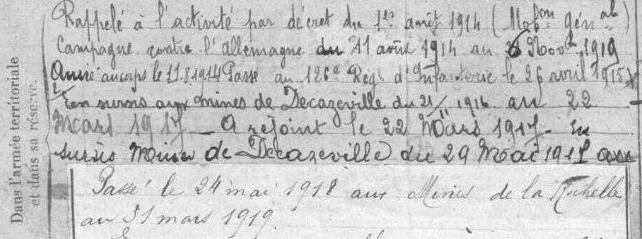 Dans l'armée territoriale
et dans sa réserve.
Rappelé à l'activité par décret du 1er août 1914 (Mob.on génale)
Campagne contre l'Allemagne du 11 août 1914 au 6 Novbre 1919
Arrivé au corps le 11.8.1914 Passé au 126e Régt d'Infanterie le 26 avril 1915
En sursis aux mines de Decazeville du 21/ 1916 au 22
Mars 1917 - A rejoint le 22 Mars 1917 - En
sursis Mines de Decazeville du 29 Mai 1917 au
Passé le 24 mai 1918 aux Mines de la Rochelle
au 31 mars 1919.